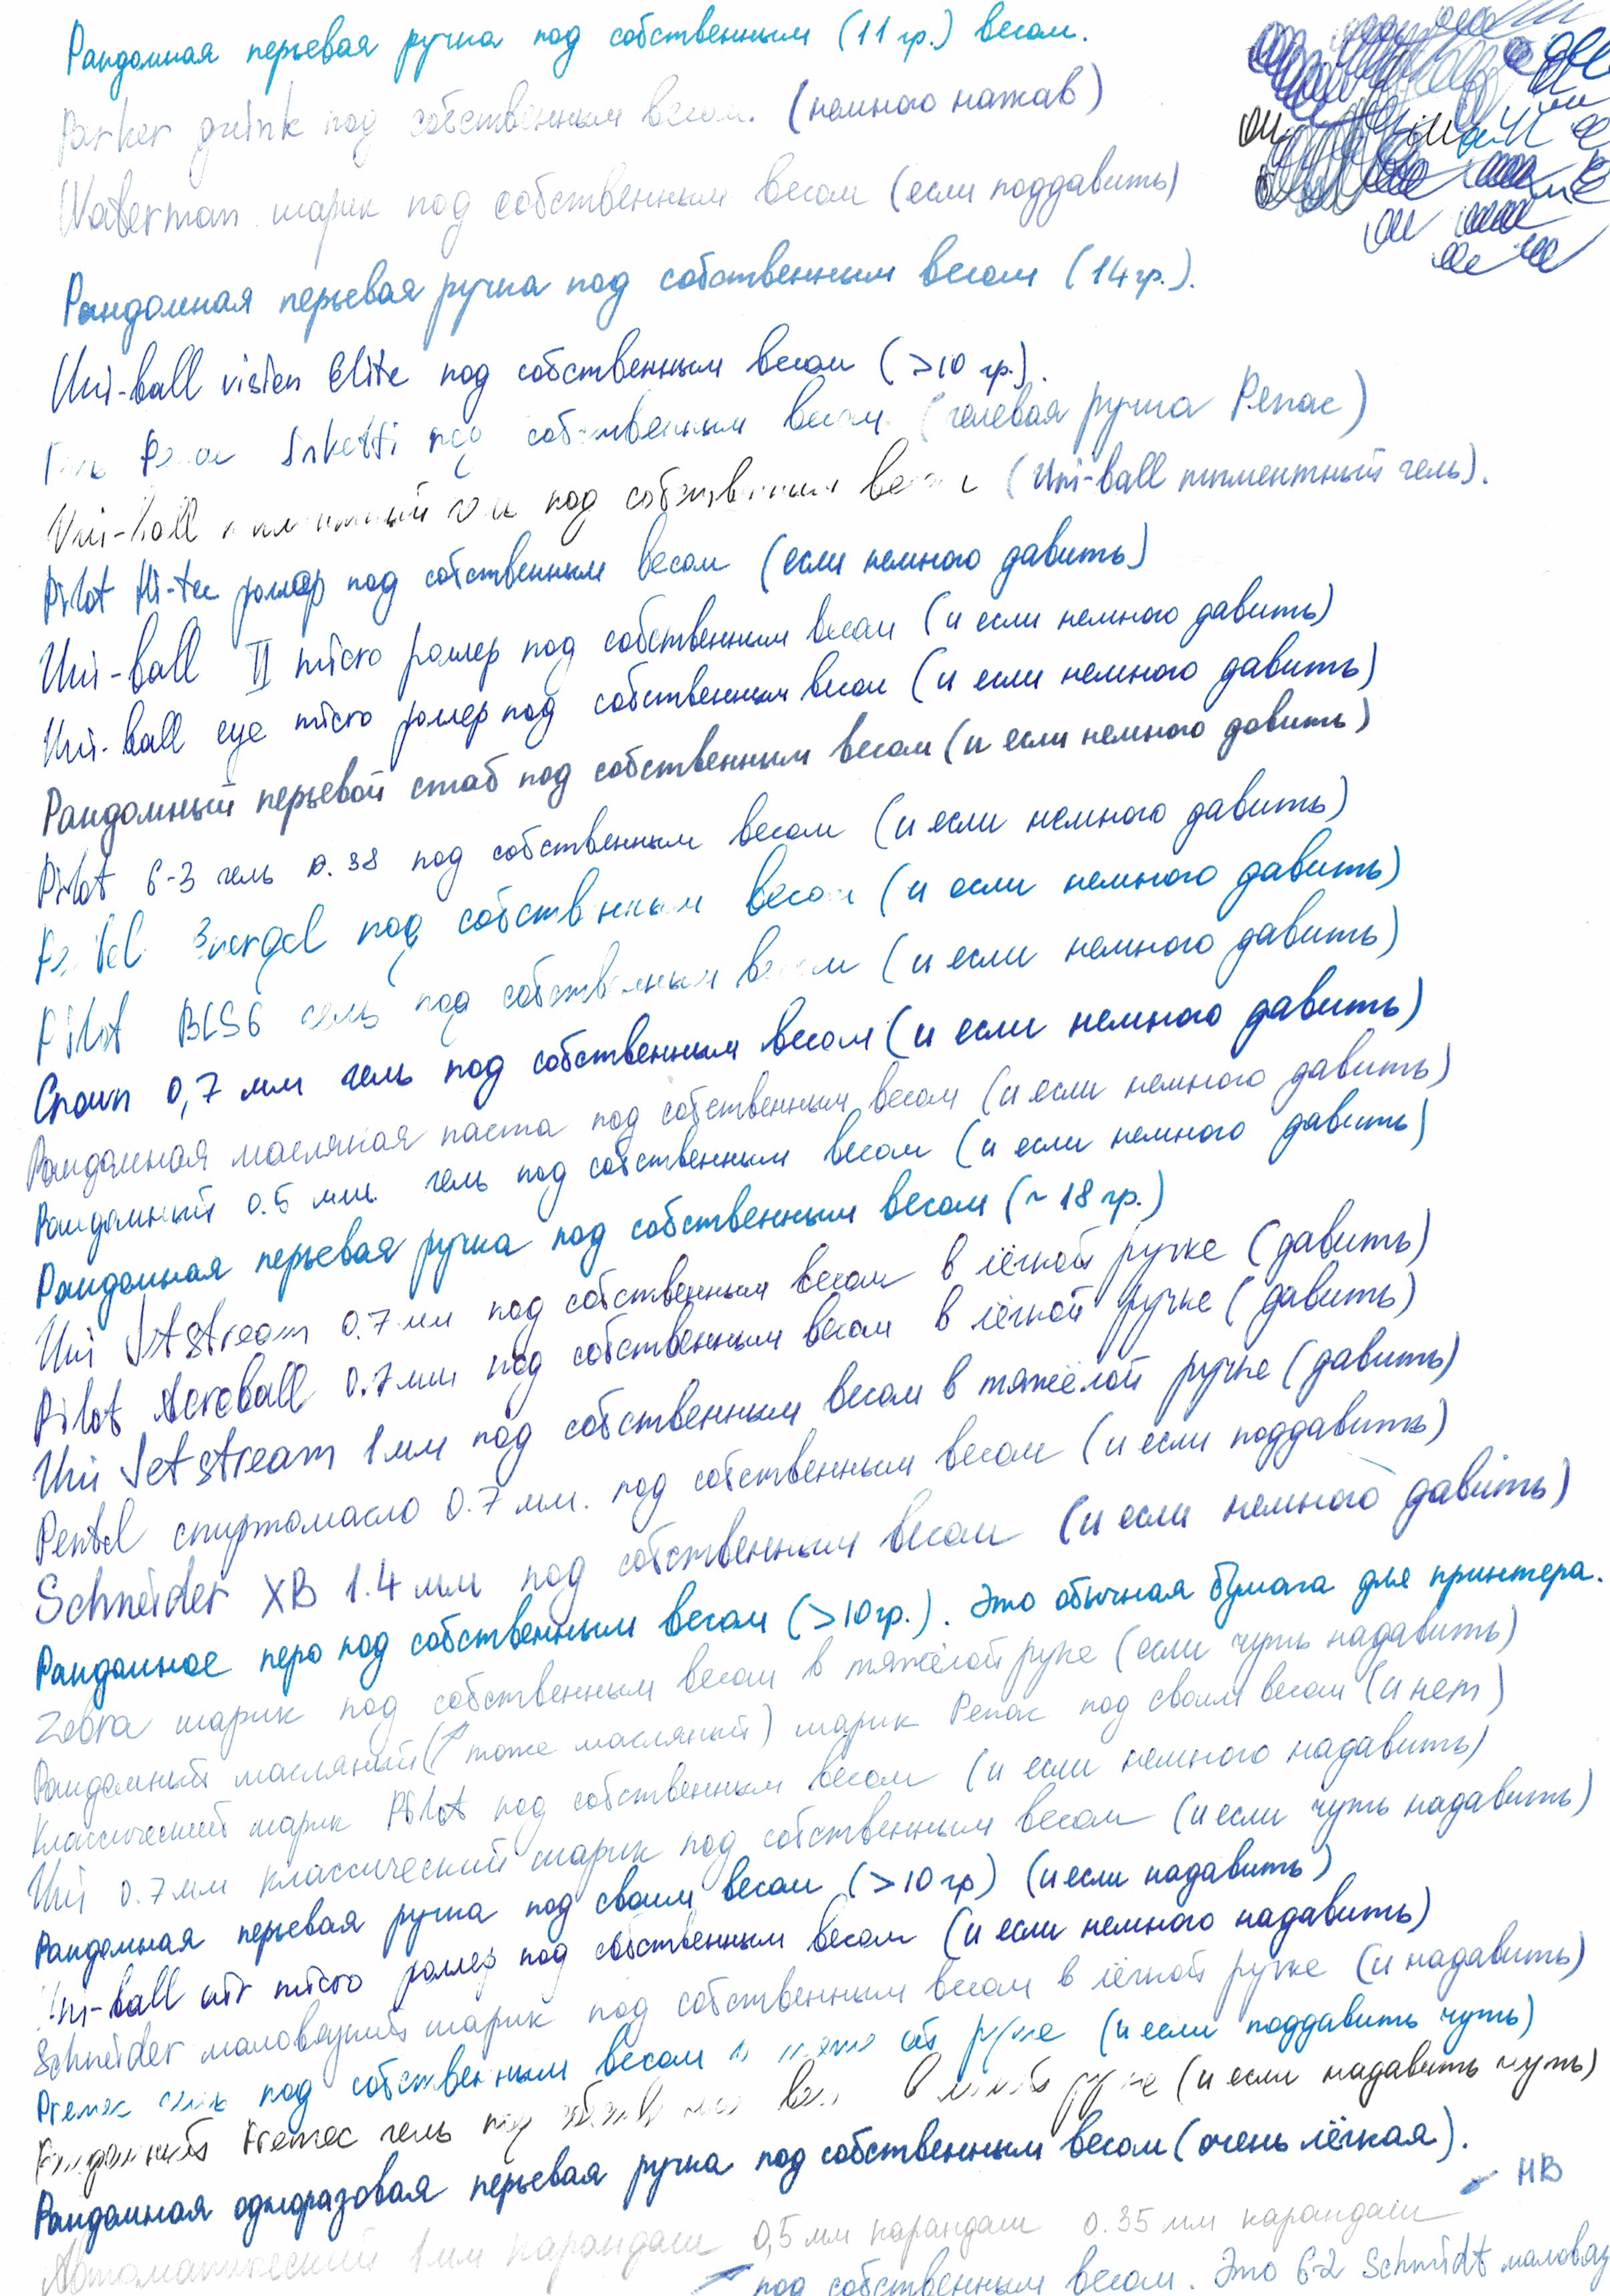 Рандомная перьевая ручка под собственным (11 гр.) весом.
Parker quink под собственным весом. (немного нажав)
Waterman шарик под собственным весом (если поддавить)
Рандомная перьевая ручка под собственным весом (14 гр.).
Uni-ball vision Elite под собственным весом (>10 гр.).
Гель Penac под собственным весом (гелевая ручка Penac)
Uni-ball пигментный гель под собственным весом (Uni-ball пигментный гель).
Pilot Hi-tec роллер под собственным весом (если немного давить)
Uni-ball II micro роллер под собственным весом (и если немного давить)
Uni-ball eye micro роллер под собственным весом (и если немного давить)
Рандомный перьевой стаб под собственным весом (и если немного давить)
Pilot G-3 гель 0.38 под собственным весом (и если немного давить)
Pentel Energel под собственным весом (и если немного давить)
Pilot BLS6 гель под собственным весом (и если немного давить)
Crown 0,7 мм гель под собственным весом (и если немного давить)
Рандомная масляная паста под собственным весом (и если немного давить)
Рандомный 0.5 мм. гель под собственным весом (и если немного давить)
Рандомная перьевая ручка под собственным весом (~ 18 гр.)
Uni Jetstream 0.7 мм под собственным весом в лёгкой ручке (давить)
Pilot Acroball 0.7 мм под собственным весом в лёгкой ручке (давить)
Uni Jetstream 1 мм под собственным весом в тяжёлой ручке (давить)
Pentel спиртомасло 0.7 мм. под собственным весом (и если поддавить)
Schneider XB 1.4 мм под собственным весом (и если немного давить)
Рандомное перо под собственным весом (>10 гр.). Это обычная бумага для принтера.
Zebra шарик под собственным весом в тяжёлой руке (если чуть надавить)
Рандомный масляный (↑ тоже масляный) шарик Penac под своим весом (и нет)
Классический шарик Pilot под собственным весом (и если немного надавить)
Uni 0.7 мм классический шарик под собственным весом (и если чуть надавить)
Рандомная перьевая ручка под своим весом (>10 гр) (и если надавить)
Uni-ball air micro роллер под собственным весом (и если немного надавить)
Schneider маловязкий шарик под собственным весом в лёгкой ручке (и надавить)
гель под собственным весом в ручке (и если поддавить чуть)
Рандомный гель под в ручке (и если надавить чуть)
Рандомная одноразовая перьевая ручка под собственным весом (очень лёгкая).
HB
Автоматический 1 мм карандаш 0,5 мм карандаш 0.35 мм карандаш
под собственным весом. Это Schmidt маловяз